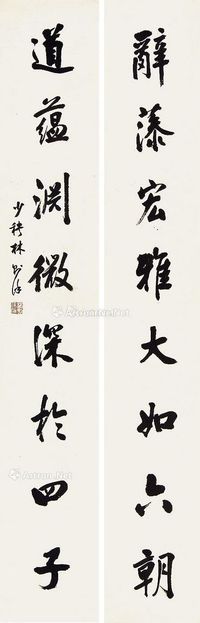 辭藻宏雅大如六朝
道蘊淵微深於四子
少穆林則徐
Artron.Net
Artron.Net